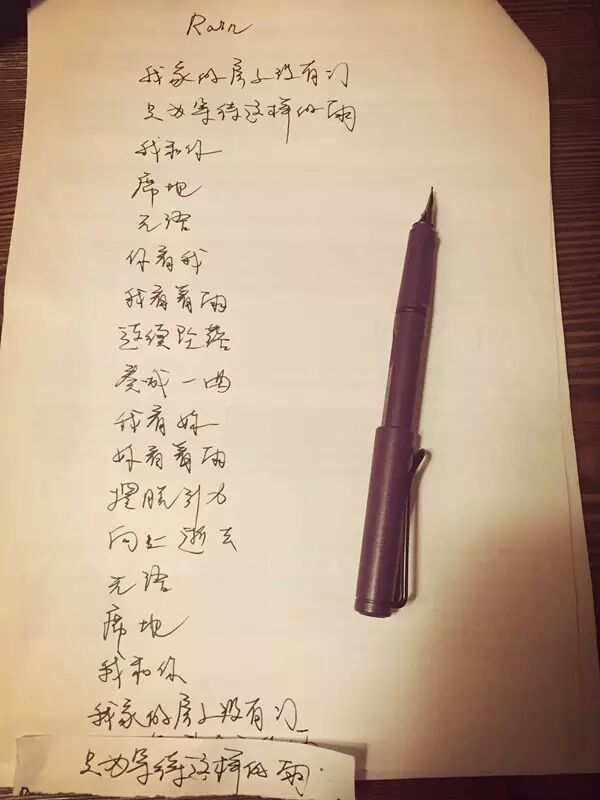 Rain
我家的房子没有门
只为等待这样的雨
我和你
席地
无语
你看我
我看着雨
连续坠落
奏成一曲
我看你
你看着雨
摆脱引力
向上逝去
无语
席地
我和你
我家的房子没有门
只为等待这样的雨.